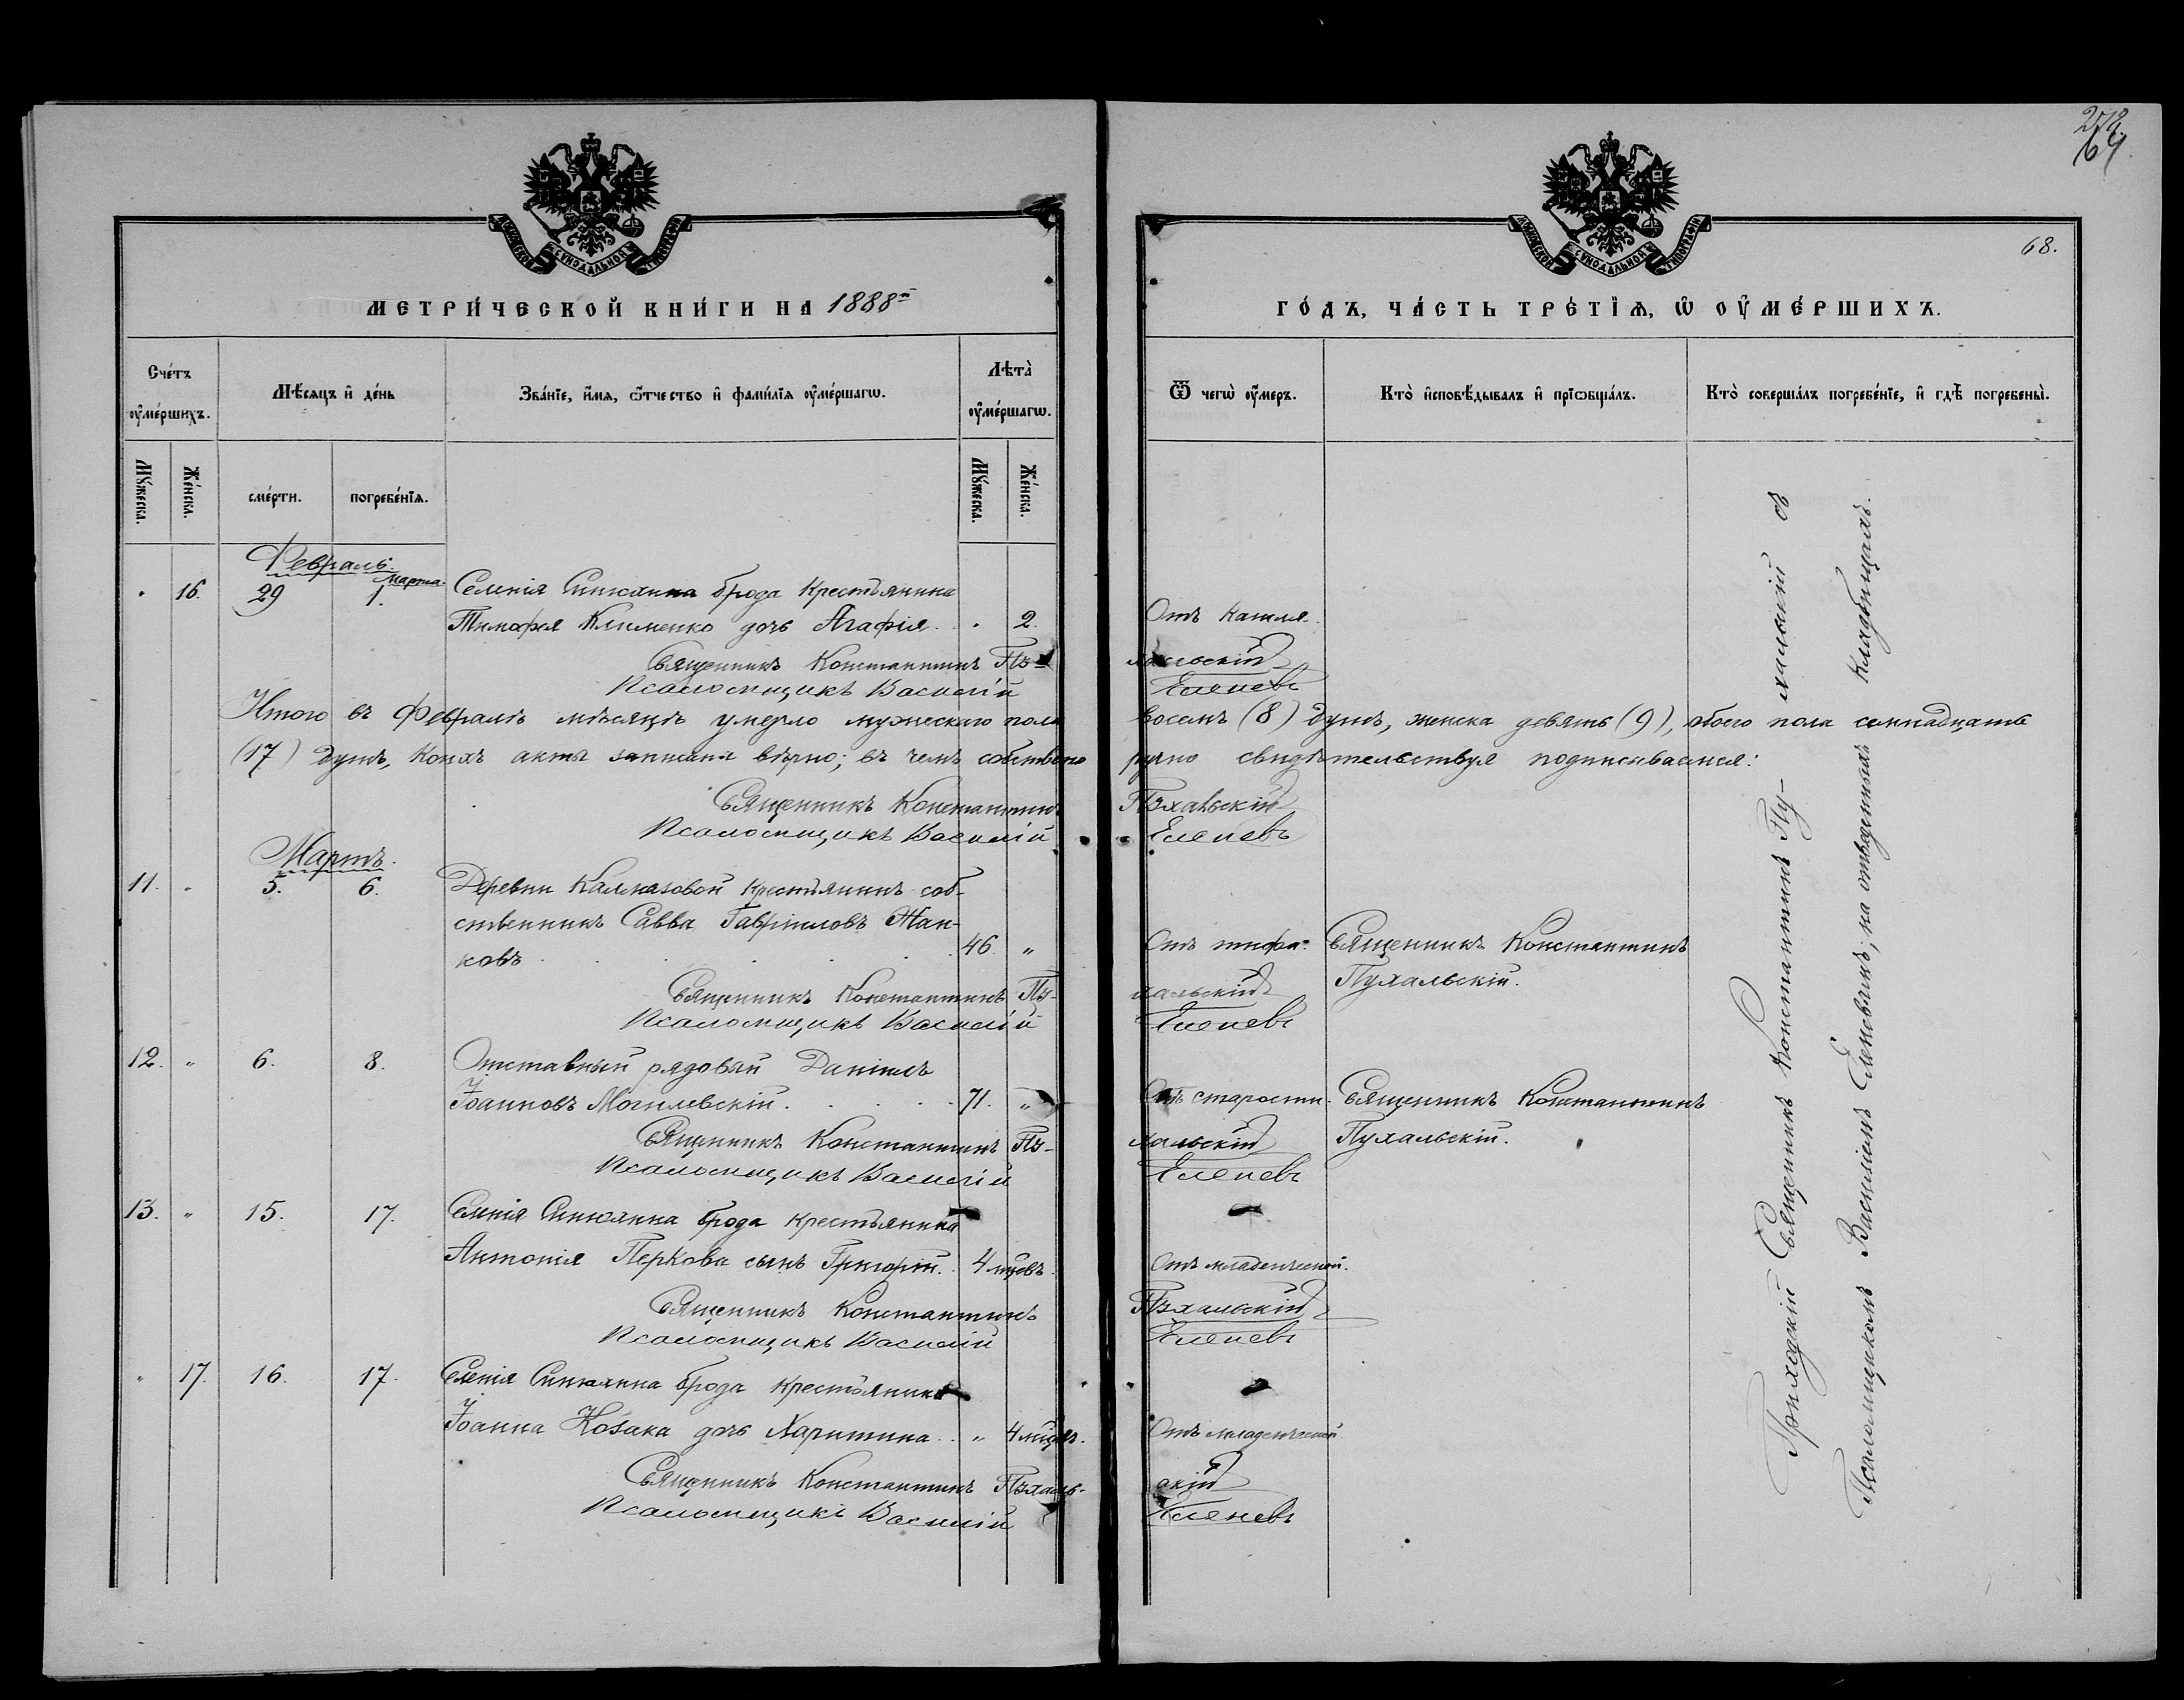 68.
МОСКОВСКОЙ СѴНОДАЛЬНОЙ ТИПОГРАФІИ
МОСКОВСКОЙ СѴНОДАЛЬНОЙ ТИПОГРАФІИ
МЕТРИ́ЧЕСКОЙ КНИ́ГИ НА 1888й
ГО́ДЪ, ЧА́СТЬ ТРЕ́ТЇѦ, Ѡ ОУ҆МЕ́РШИХЪ.
Сче́тъ оу҆ме́ршихъ.
Мѣ́сяцъ и҆ де́нь
Зва́нїе, и҆́мѧ, ѻ҆́тчество и҆ фами́лїѧ оу҆ме́ршагѡ.
Лѣта̀ оу҆ме́ршагѡ.
Ѿ чегѡ̀ оу҆́меръ.
Кто̀ и҆сповѣ́дывалъ и҆ прїѡбща́лъ.
Кто̀ соверша́лъ погребе́нїе, и҆ гдѣ̀ погребены̀.
Мꙋ́жеска.
Же́нска.
сме́рти.
погребе́нїѧ.
Мꙋ́жеска.
Же́нска.
Февраль.
16. 29 Марта 1. Селенія Синюхина брода крестьянина
Тимофея Клименко дочь Агафія . . 2. Отъ кашля.
Священникъ Константинъ Пу-хальскій
Псаломщикъ Василій Еленевъ
Итого въ Февралѣ мѣсяцѣ умерло мужескаго пола восемь (8) душъ, женска девять (9), обоего пола семнадцать
(17) душъ, коихъ акты записаны вѣрно; въ чемъ собственно ручно свидѣтельствуя подписываемся:
Священникъ Константинъ Пухальскій
Псаломщикъ Василій Еленевъ
Мартъ.
11. „ 5. 6. Деревни Калмазовой крестьянинъ соб-
ственникъ Савва Гавріиловъ Жан-
ковъ . . . . . 46 „ Отъ тифа. Священникъ Константинъ
Пухальскій.
Священникъ Константинъ Пу-хальскій
Псаломщикъ Василій Еленевъ
12. „ 6. 8. Отставный рядовый Даніилъ
Іоанновъ Могилевскій . . . . 71. „ Отъ старости. Священникъ Константинъ
Пухальскій.
Священникъ Константинъ Пу-хальскій
Псаломщикъ Василій Еленевъ
13. „ 15. 17. Селенія Синюхина брода крестьянина
Антонія Перкова сынъ Григорій. 4 мцевъ. Отъ младенческой.
Священникъ Константинъ Пухальскій
Псаломщикъ Василій Еленевъ
„ 17. 16. 17. Селенія Синюхина брода крестьянина
Іоанна Козака дочь Харитина . „ 4 мцевъ. Отъ младенческой
Священникъ Константинъ Пухаль-скій
Псаломщикъ Василій Еленевъ
Приходскій Священникъ Константинъ Пу-хальскій съ
Псаломщикомъ Василіемъ Еленевымъ, на отведенныхъ кладбищахъ.